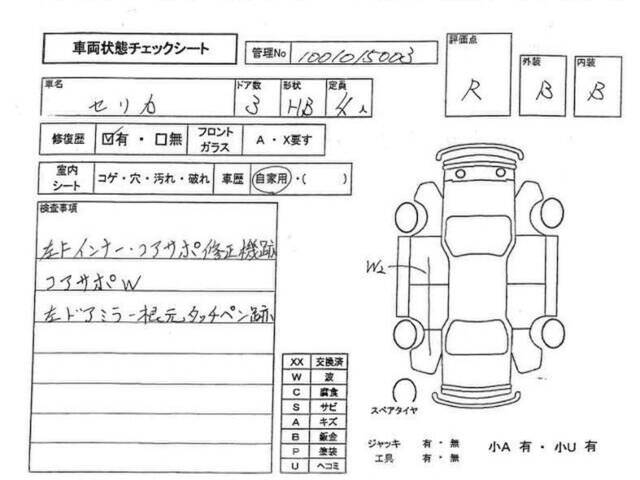 車両状態チェックシート
管理No 1001015003
評価点 R
外装 B
内装 B
車名 セリカ
ドア数 3
形状 HB
定員 4人
修復歴 ☑有・□無
フロントガラス A・X要す
室内シート コゲ・穴・汚れ・破れ
車歴 自家用・( )
検査事項
左Fインナー・コアサポ修正機跡
コアサポW
左ドアミラー根元タッチペン跡
W2
XX 交換済
W 波
C 腐食
S サビ
A キズ
B 鈑金
P 塗装
U ヘコミ
スペアタイヤ
ジャッキ 有・無
工具 有・無
小A 有・小U 有